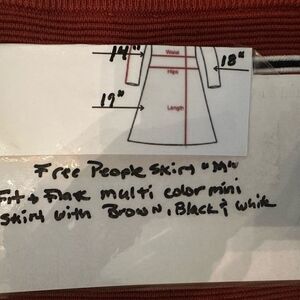 14" Waist 18"
Hips
19" Length
Free People Skirt "M"
Fit + Flare multi color mini
skirt with Brown, Black & white